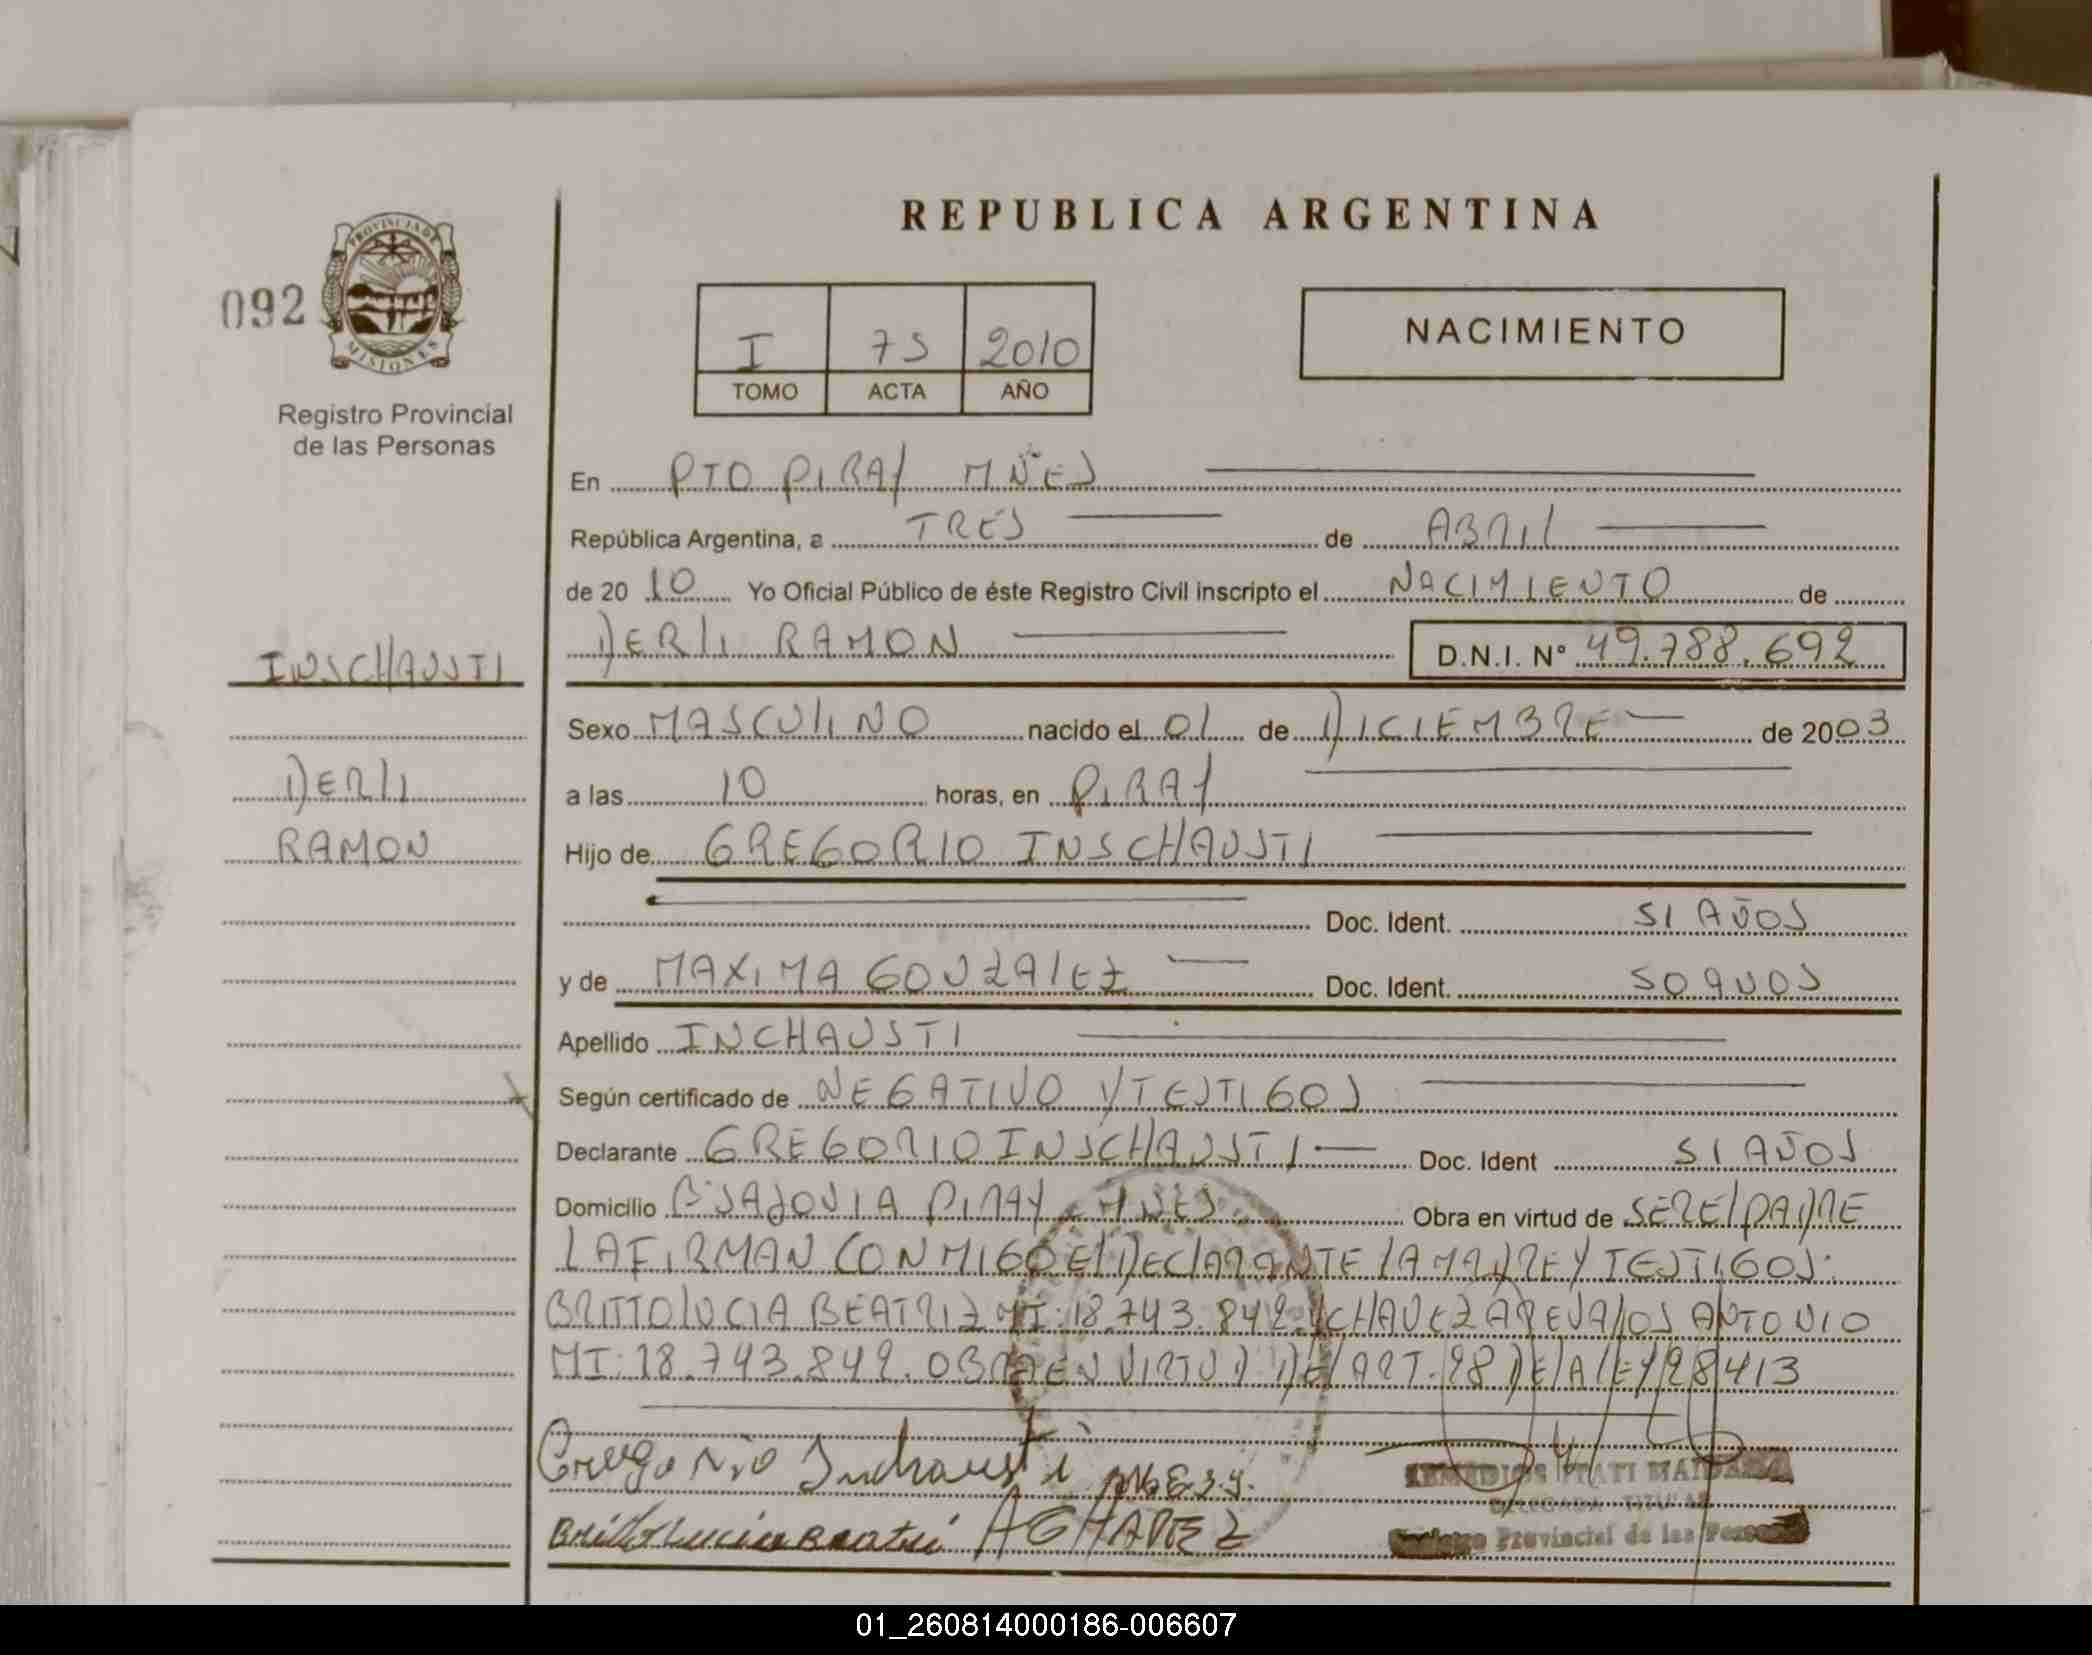 REPUBLICA ARGENTINA
092
PROVINCIA DE
MISIONES
Registro Provincial
de las Personas
I 75 2010
TOMO ACTA AÑO
NACIMIENTO
En PTO PIRAY MÑES
República Argentina, a TRES de ABRIL
de 2010 Yo Oficial Público de éste Registro Civil inscripto el NACIMIENTO de
DERLI RAMON D.N.I. N° 49.788.692
INSCHAUSTI
DERLI
RAMON
Sexo MASCULINO nacido el 01 de DICIEMBRE de 2003
a las 10 horas, en PIRAY
Hijo de GREGORIO INSCHAUSTI
Doc. Ident. 51 AÑOS
y de MAXIMA GONZALEZ Doc. Ident. 50 AÑOS
Apellido INCHAUSTI
Según certificado de NEGATIVO Y TESTIGOS
Declarante GREGORIO INSCHAUSTI Doc. Ident 51 AÑOS
Domicilio PIRAY MÑES Obra en virtud de SER EL PADRE
LA FIRMAN CONMIGO EL DECLARANTE LA MADRE Y TESTIGOS:
BRITTO LUCIA BEATRIZ MI: 18.743.842. Y CHAVEZ AREVALOS ANTONIO
MI: 18.743.842. OBRA EN VIRTUD DEL ART. 28 DE LA LEY 28413
Gregorio Inchausti
Britto Lucia Beatri A CHAVEZ
DELEGADA TITULAR
Registro Provincial de las Personas
01_260814000186-006607